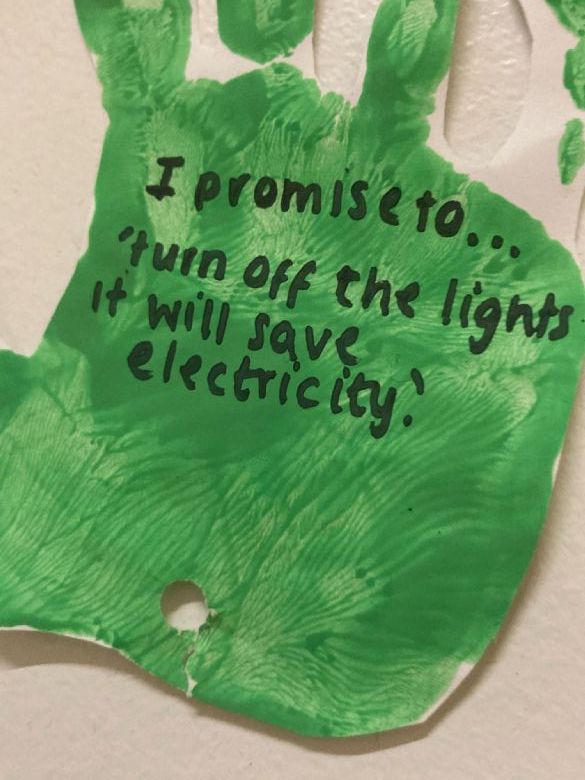 I promise to...
'turn off the lights
it will save
electricity.'